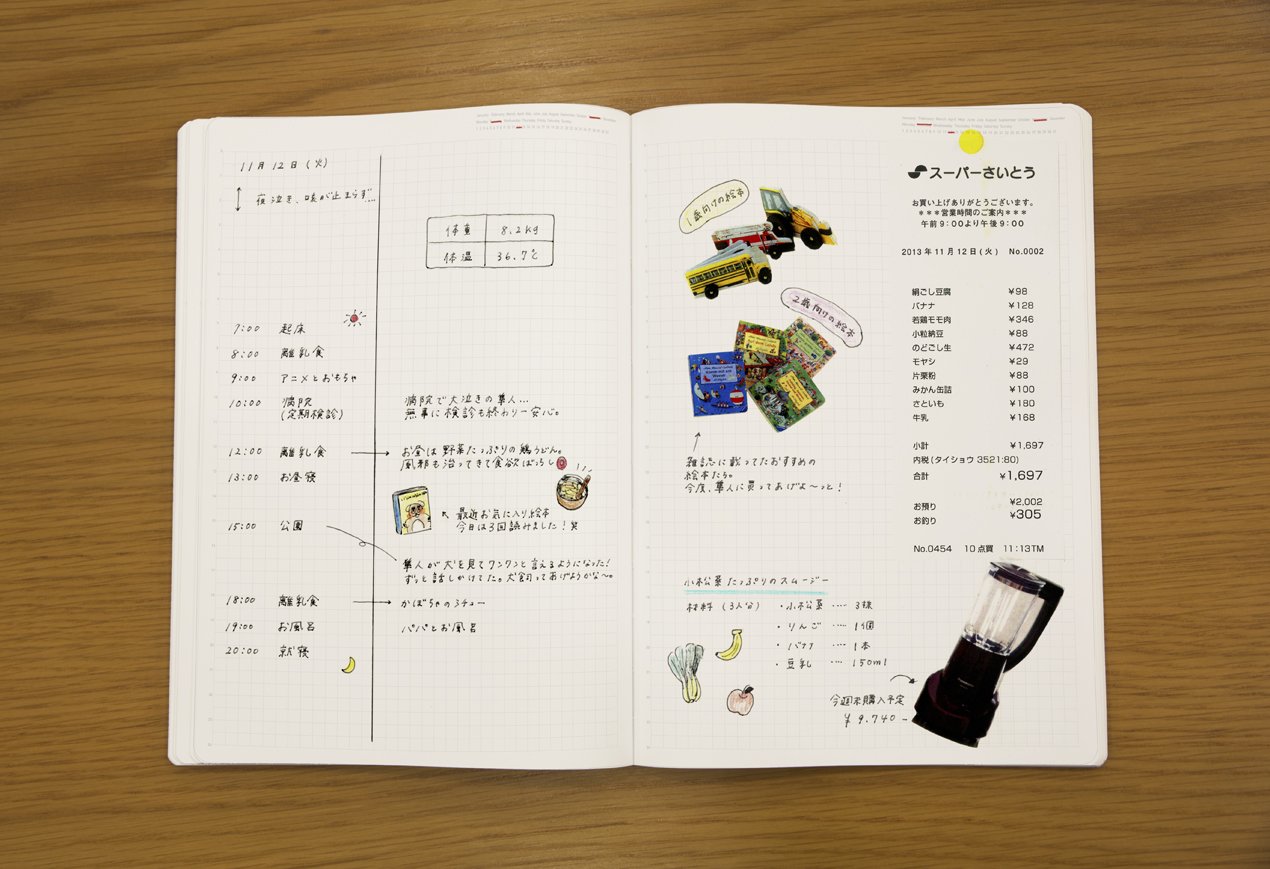 11月12日(火)
夜泣き、咳が止まらず…
体重 8.2kg
体温 36.7℃
7:00 起床
8:00 離乳食
9:00 アニメとおもちゃ
10:00 病院
(定期検診)
病院で大泣きの隼人…
無事に検診も終わり一安心。
12:00 離乳食
お昼は野菜たっぷりの鶏うどん。
風邪も治ってきて食欲ばっちし
13:00 お昼寝
最近お気に入り絵本
今日は3回読みました!笑
15:00 公園
隼人が犬を見てワンワンと言えるようになった!
ずっと話しかけてた。犬飼ってあげようかな〜。
18:00 離乳食
かぼちゃのシチュー
19:00 お風呂
パパとお風呂
20:00 就寝
1歳向けの絵本
2歳向けの絵本
雑誌に載ってたおすすめの
絵本たち。
今度、隼人に買ってあげよ〜っと!
小松菜たっぷりのスムージー
材料(3人分)
・小松菜 …. 3株
・りんご …. 1個
・バナナ …. 1本
・豆乳 …. 150ml
今週末購入予定
¥9,740-
スーパーさいとう
お買い上げありがとうございます。
***営業時間のご案内***
午前9:00より午後9:00
2013年11月12日(火) No.0002
絹ごし豆腐 ¥98
バナナ ¥128
若鶏モモ肉 ¥346
小粒納豆 ¥88
のどごし生 ¥472
モヤシ ¥29
片栗粉 ¥88
みかん缶詰 ¥100
さといも ¥180
牛乳 ¥168
小計 ¥1,697
内税(タイショウ 3521:80)
合計 ¥1,697
お預り ¥2,002
お釣り ¥305
No.0454 10点買 11:13TM